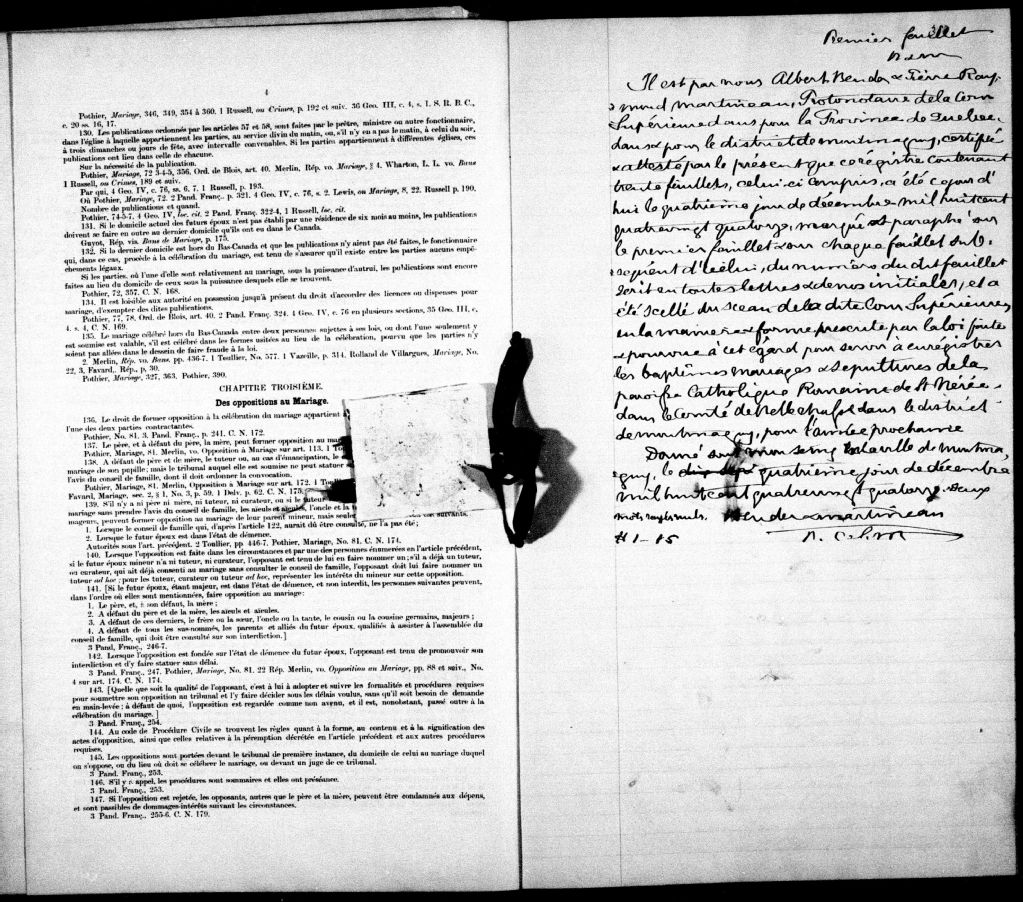 4
Pothier, Mariage, 346, 349, 354 à 360. 1 Russell, ou Crimes, p. 192 et suiv. 36 Geo. III, c. 4, s. 1. S. R. B. C.,
c. 20 ss. 16, 17.
130. Les publications ordonnés par les articles 57 et 58, sont faites par le prêtre, ministre ou autre fonctionnaire,
dans l'église à laquelle appartiennent les parties, au service divin du matin, ou, s'il n'y en a pas le matin, à celui du soir,
à trois dimanches ou jours de fête, avec intervalle convenables. Si les parties appartiennent à différentes églises, ces
publications ont lieu dans celle de chacune.
Sur la nécessité de la publication.
Pothier, Mariage, 72 3-4-5, 356, Ord. de Blois, art. 40. Merlin, Rép. vo. Mariage, § 4. Wharton, L. L. vo. Bans
1 Russell, ou Crimes, 189 et suiv.
Par qui, 4 Geo. IV, c. 76, ss. 6, 7. 1 Russell, p. 193.
Où Pothier, Mariage, 72. 2 Pand. Franç. p. 321. 4 Geo. IV, c. 76, s. 2. Lewis, ou Mariage, 8, 22. Russell p. 190.
Nombre de publications et quand.
Pothier, 74-5-7, 4 Geo. IV, loc. cit. 2 Pand. Franç. 322-4, 1 Russell, loc. cit.
131. Si le domicile actuel des futurs époux n'est pas établi par une résidence de six mois au moins, les publications
doivent se faire en outre au dernier domicile qu'ils ont eu dans le Canada.
Guyot, Rép. vis. Bans de Mariage, p. 175.
132. Si le dernier domicile est hors du Bas-Canada et que les publications n'y aient pas été faites, le fonctionnaire
qui, dans ce cas, procède à la célébration du mariage, est tenu de s'assurer qu'il existe entre les parties aucuns empê-
chements légaux.
Si les parties, où l'une d'elles sont relativement au mariage, sous la puissance d'autrui, les publications sont encore
faites au lieu du domicile de ceux sous la puissance desquels elle se trouvent.
Pothier, 72, 357. C. N. 168.
134. Il est loisible aux autorité en possession jusqu'à présent du droit d'accorder des licences ou dispenses pour
mariage, d'exempter des dites publications.
Pothier, 77, 78, Ord. de Blois, art. 40. 2 Pand. Franç. 324. 4 Geo. IV, c. 76 en plusieurs sections, 35 Geo. III, c.
4. s. 4, C. N. 169.
135. Le mariage célébré hors du Bas-Canada entre deux personnes sujettes à ses lois, ou dont l'une seulement y
est soumise est valable, s'il est célébré dans les formes usitées au lieu de la célébration, pourvu que les parties n'y
soient pas allées dans le dessein de faire fraude à la loi.
2. Merlin, Rép. vo. Bans. pp. 436-7. 1 Toullier, No. 577. 1 Vazeille, p. 314. Rolland de Villargues, Mariage, No.
22, 3, Favard, Rép., p. 30.
Pothier, Mariage, 327, 363. Pothier, 390.
CHAPITRE TROISIÈME.
Des oppositions au Mariage.
136. Le droit de former opposition à la célébration du mariage appartient
l'une des deux parties contractantes.
Pothier, No. 81. 3. Pand. Franç., p. 241. C. N. 172.
137. Le père, et à défaut du père, la mère, peut former opposition au
Pothier, Mariage, 81. Merlin, vo. Opposition à Mariage sur art. 113. 1
138. A défaut de père et de mère, le tuteur ou, au cas d'émancipation, le
mariage de son pupille; mais le tribunal auquel elle est soumise ne peut statuer
l'avis du conseil de famille, dont il doit ordonner la convocation.
Pothier, Mariage, 81. Merlin, Opposition à Mariage sur art. 172. 1
Favard, Mariage, sec. 2, § 1. No. 3, p. 59. 1 Delv. p. 62. C. N. 175.
139. S'il n'y a ni père ni mère, ni tuteur, ni curateur, ou si le tuteur
mariage sans prendre l'avis du conseil de famille, les aïeuls et aïeules, l'oncle et la
majeurs, peuvent former opposition au mariage de leur parent mineur, mais
suivants.
1. Lorsque le conseil de famille qui, d'après l'article 122, aurait dû être consulté, ne l'a pas été;
2. Lorsque le futur époux est dans l'état de démence.
Autorités sous l'art. précédent. 2 Toullier, pp. 446-7. Pothier, Mariage, No. 81. C. N. 174.
140. Lorsque l'opposition est faite dans les circonstances et par une des personnes énumérées en l'article précédent,
si le futur époux mineur n'a ni tuteur, ni curateur, l'opposant est tenu de lui en faire nommer un; s'il a déjà un tuteur,
ou curateur, qui ait déjà consenti au mariage sans consulter le conseil de famille, l'opposant doit lui faire nommer un
tuteur ad hoc; pour les tuteur, curateur ou tuteur ad hoc, représenter les intérêts du mineur sur cette opposition.
141. [Si le futur époux, étant majeur, est dans l'état de démence, et non interdit, les personnes suivantes peuvent,
dans l'ordre où elles sont mentionnées, faire opposition au mariage:
1. Le père, et, à son défaut, la mère;
2. A défaut du père et de la mère, les aïeuls et aïeules.
3. A défaut de ces derniers, le frère ou la sœur, l'oncle ou la tante, le cousin ou la cousine germains, majeurs;
4. A défaut de tous les sus-nommés, les parents et alliés du futur époux, qualifiés à assister à l'assemblée du
conseil de famille, qui doit être consulté sur son interdiction.]
3 Pand. Franç., 246-7.
142. Lorsque l'opposition est fondée sur l'état de démence du futur époux, l'opposant est tenu de promouvoir son
interdiction et d'y faire statuer sans délai.
3 Pand. Franç., 247. Pothier, Mariage, No. 81. 22 Rép. Merlin, vo. Opposition au Mariage, pp. 88 et suiv., No.
4 sur art. 174. C. N. 174.
143. [Quelle que soit la qualité de l'opposant, c'est à lui à adopter et suivre les formalités et procédures requises
pour soumettre son opposition au tribunal et l'y faire décider sous les délais voulus, sans qu'il soit besoin de demande
en main-levée; à défaut de quoi, l'opposition est regardée comme non avenu, et il est, nonobstant, passé outre à la
célébration du mariage.]
3 Pand. Franç., 254.
144. Au code de Procédure Civile se trouvent les règles quant à la forme, au contenu et à la signification des
actes d'opposition, ainsi que celles relatives à la péremption décrétée en l'article précédent et aux autres procédures
requises.
145. Les oppositions sont portées devant le tribunal de première instance, du domicile de celui au mariage duquel
on s'oppose, ou du lieu où doit se célébrer le mariage, ou devant un juge de ce tribunal.
3 Pand. Franç., 253.
146. S'il y a appel, les procédures sont sommaires et elles ont préséance.
3 Pand. Franç., 253.
147. Si l'opposition est rejetée, les opposants, autres que le père et la mère, peuvent être condamnés aux dépens,
et sont passibles de dommages-intérêts suivant les circonstances.
3 Pand. Franç., 255-6. C. N. 179.
Premier feuillet
Il est par nous Albert Bender & Pierre Ray-
mond Martineau, Protonotaire de la Cour
Supérieure dans pour la Province de Québec,
dans & pour le district de Montmagny, certifié
& attesté par le présent que ce registre contenant
trente feuillets, celui-ci compris, a été ce jour d'
hui le quatrième jour de décembre mil huit cent
quatre vingt quatorze, marqué et paraphé sur
le premier feuillet & sur chaque feuillet sub-
séquent d'icelui, du numéro du dit feuillet
écrit en toutes lettres & de nos initiales, et a
été scellé du sceau de la dite Cour Supérieure,
en la manière & forme prescrite par la loi faite
& pourvue à cet égard pour servir à enregistrer
les baptêmes mariages & sépultures de la
paroisse Catholique Romaine de St Nérée
dans le Comté de Bellechasse dans le district
de Montmagny, pour l'année prochaine
Donné sous mon seing en la ville de Montma-
gny, le quatrième jour de décembre
mil huit cent quatre vingt quatorze. Deux
mots rayés nuls. Bender & Martineau
P. C. S. M
# 1-15